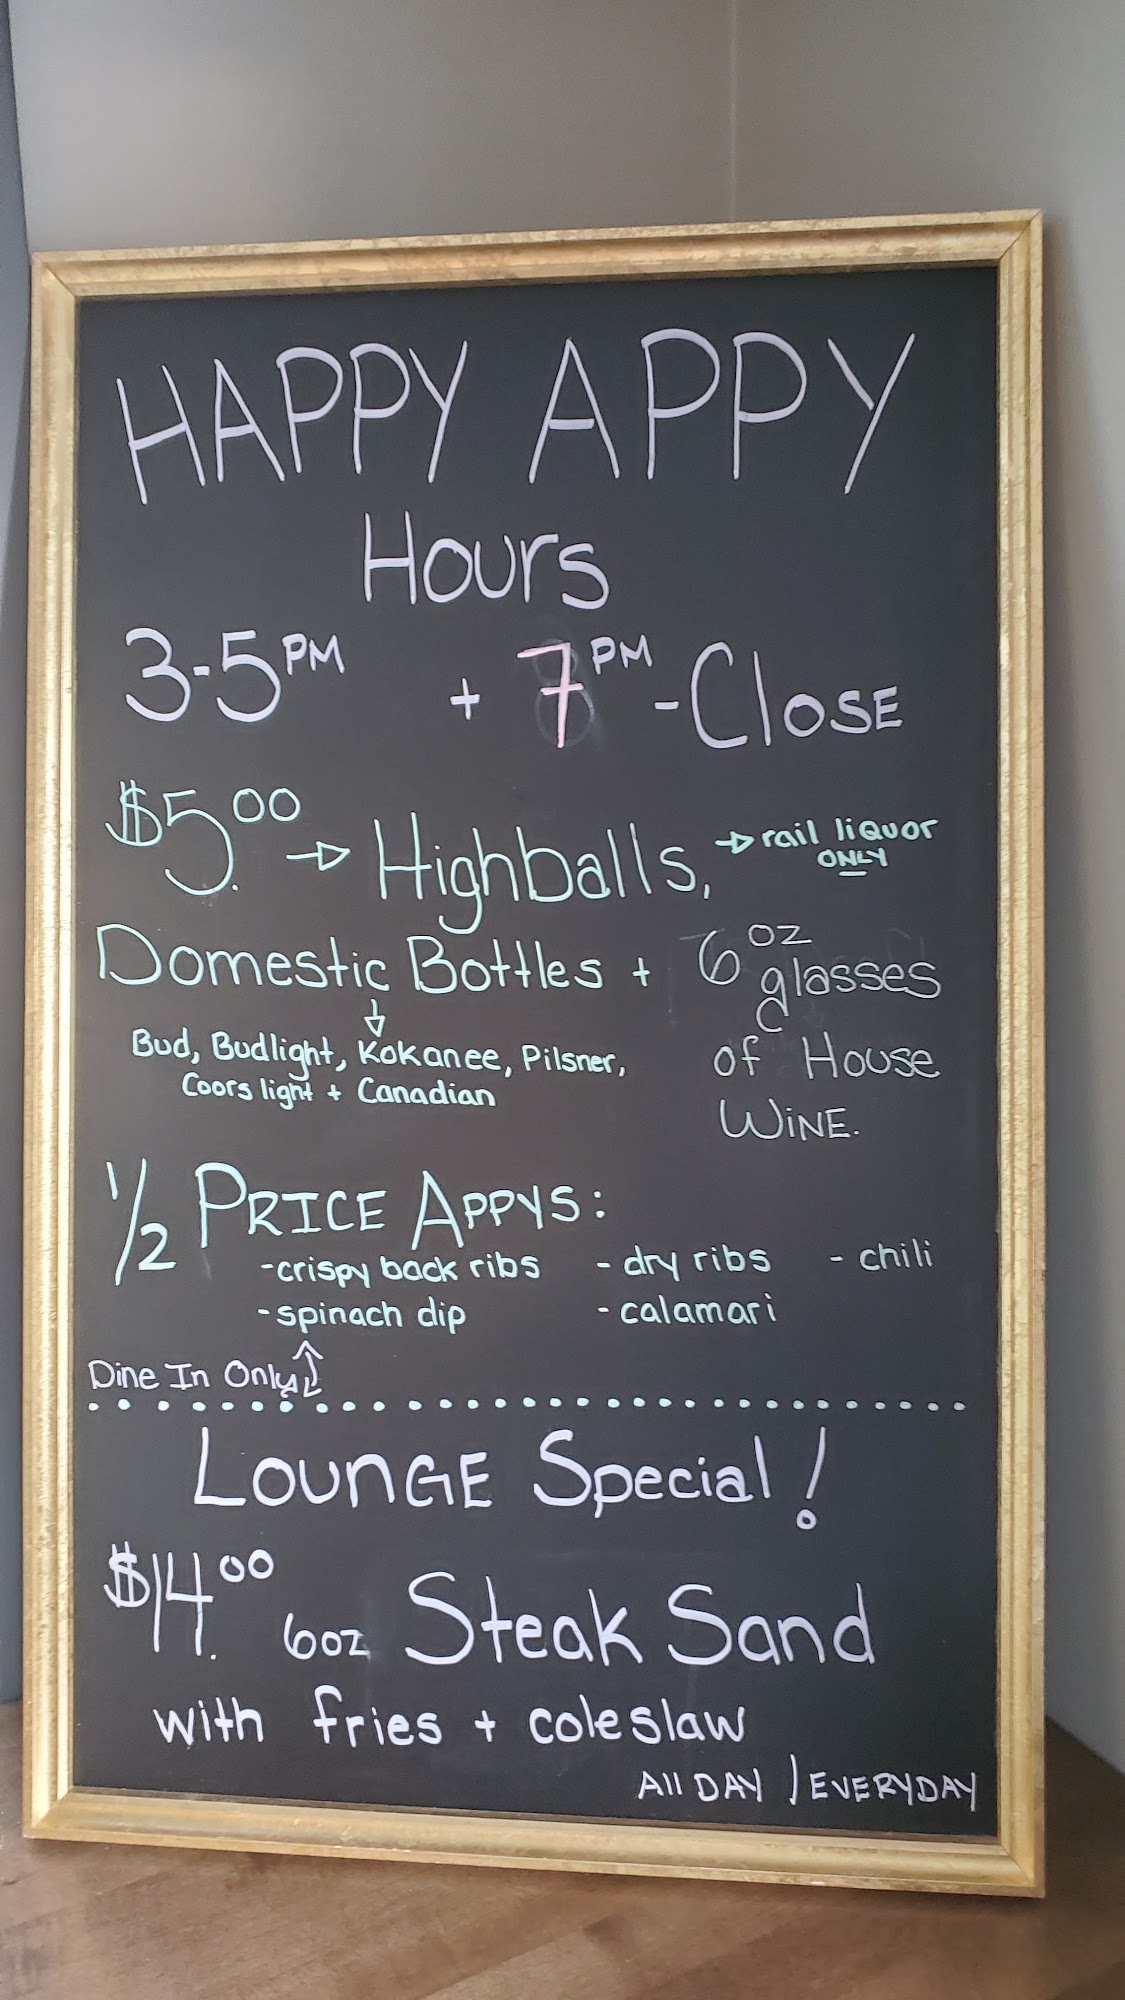 HAPPY APPY
Hours
3-5PM + 7PM - Close
$5.00 → Highballs, → rail liquor ONLY
Domestic Bottles + 6oz glasses
of House
Wine.
↓
Bud, Budlight, Kokanee, Pilsner,
Coors light + Canadian
1/2 PRICE APPYS:
-crispy back ribs - dry ribs - chili
-spinach dip - calamari
Dine In Only
Lounge Special!
$14.00 6oz Steak Sand
with fries + coleslaw
All DAY / EVERYDAY